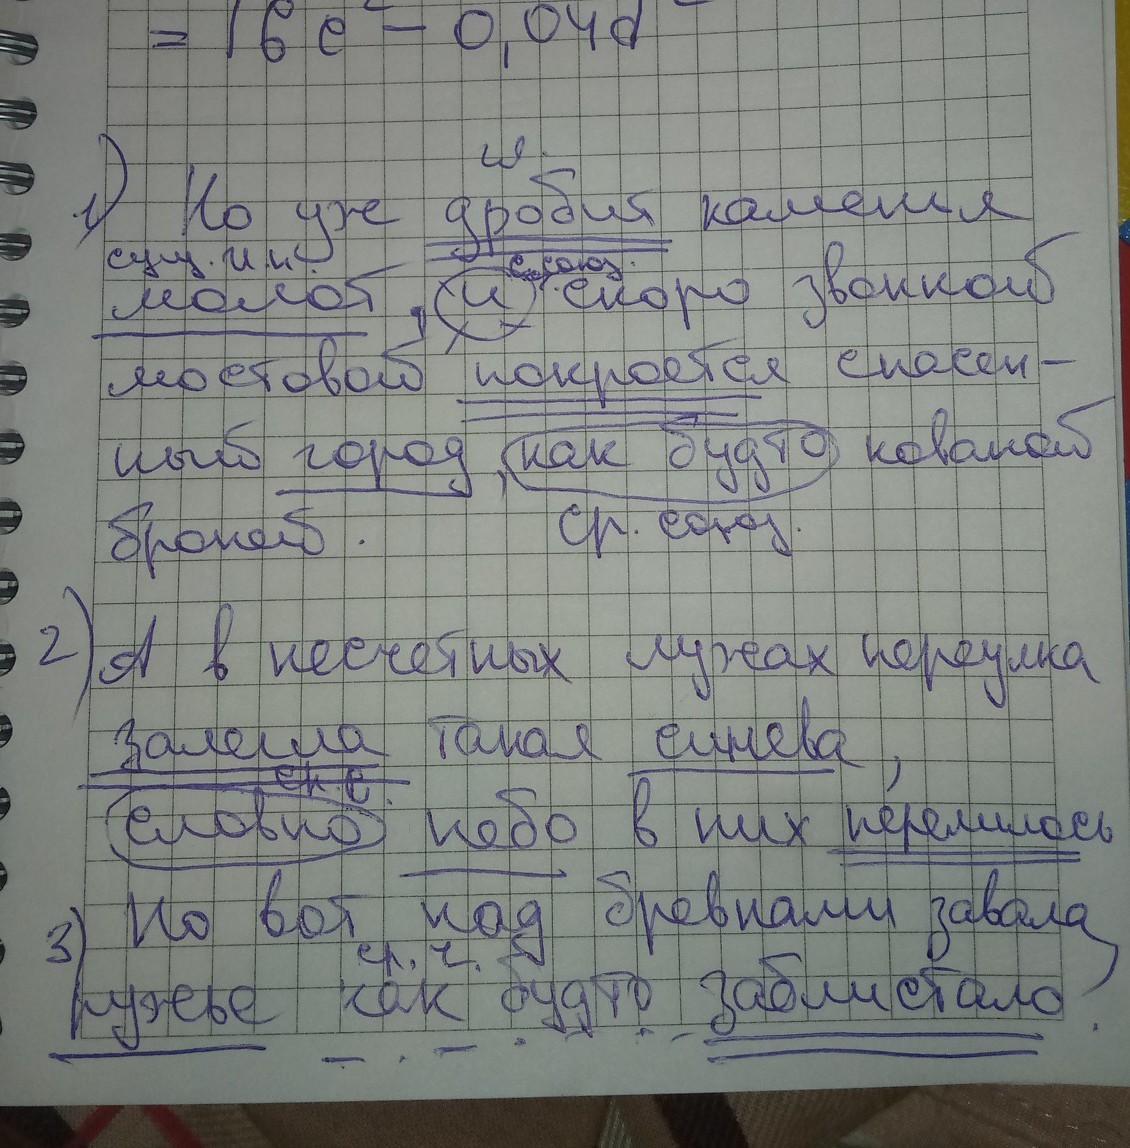 = 16c² - 0,04d²
гл.
1) Но уже дробит каменья
сущ. И.п. с.союз.
молот, и скоро звонкой
мостовой покроется спасен-
ный город, как будто кованой
броней. ср. союз.
2) А в несчетных лужах переулка
залегла такая синева,
словно небо в них перелилось
3) Но вот над бревнами завала,
ср. ч.
ружье как будто заблистало.